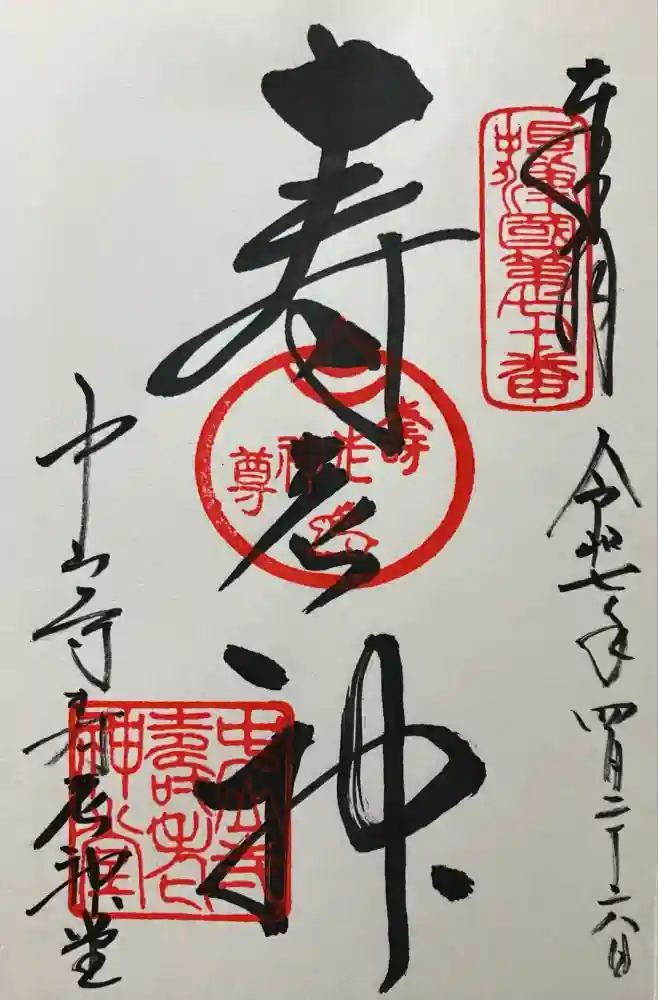 奉拝
摂津國第七十番
令和七年四月二十六日
寿老神
壽老神尊
中山寺寿老神堂
中山寺
壽老
神堂